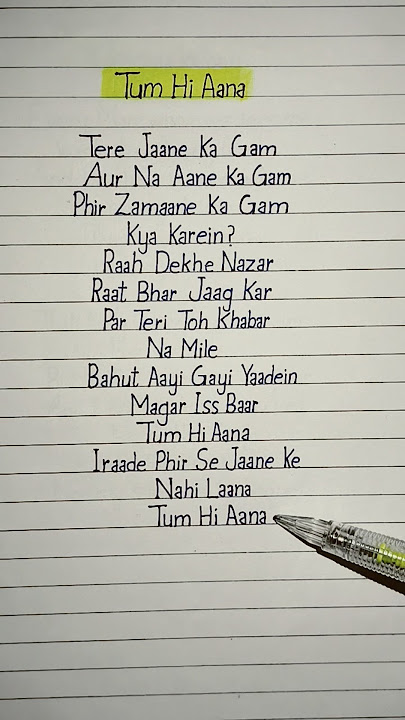 Tum Hi Aana
Tere Jaane Ka Gam
Aur Na Aane Ka Gam
Phir Zamaane Ka Gam
Kya Karein?
Raah Dekhe Nazar
Raat Bhar Jaag Kar
Par Teri Toh Khabar
Na Mile
Bahut Aayi Gayi Yaadein
Magar Iss Baar
Tum Hi Aana
Iraade Phir Se Jaane Ke
Nahi Laana
Tum Hi Aana